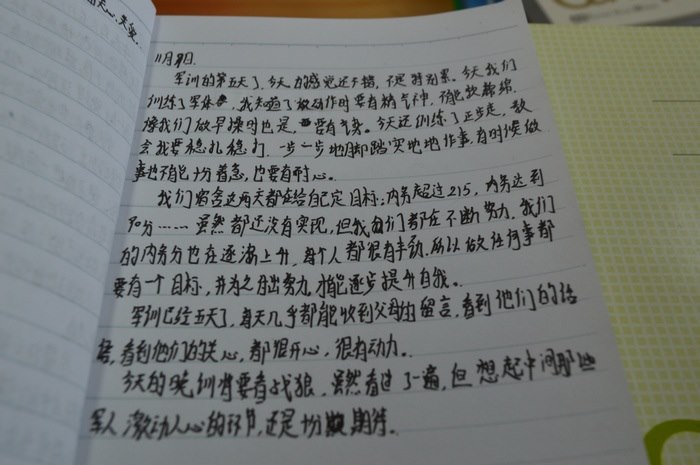 11月8日.
军训的第五天了,今天的感觉还不错,不是特别累。今天我们
训练了军体拳,我知道了做动作时要有精气神,不能软绵绵,
像我们做早操时也是,要有气势。今天还训练了正步走,教
会我要稳扎稳打,一步一步地脚踏实地地作事,有时候做
事也不能十分着急,也要有耐心。
我们宿舍这两天都在给自己定目标:内务超过215,内务达到
70分……虽然都还没有实现,但我们都在不断努力,我们
的内务分也在逐渐上升,每个人都很有干劲,所以做任何事都
要有一个目标,并为之付出努力,才能逐步提升自我。
军训已经五天了,每天几乎都能收到父母的留言,看到他们的话
语,看到他们的关心,都很开心,很有动力。
今天的晚训将要看战狼,虽然看过了一遍,但想起中间那些
军人激动人心的环节,还是十分期待。